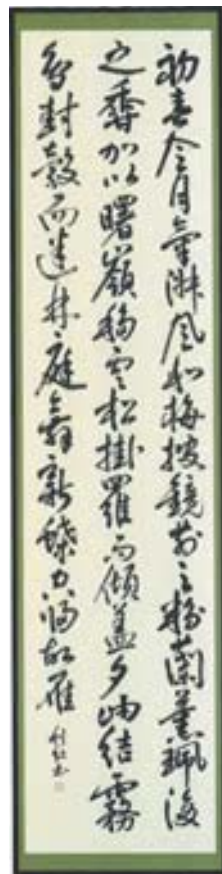 初春令月氣淑風和梅披鏡前之粉蘭薫珮後
之香加以曙嶺移雲松掛羅而傾盖夕岫結霧
鳥封縠而迷林庭舞新蝶空歸故雁